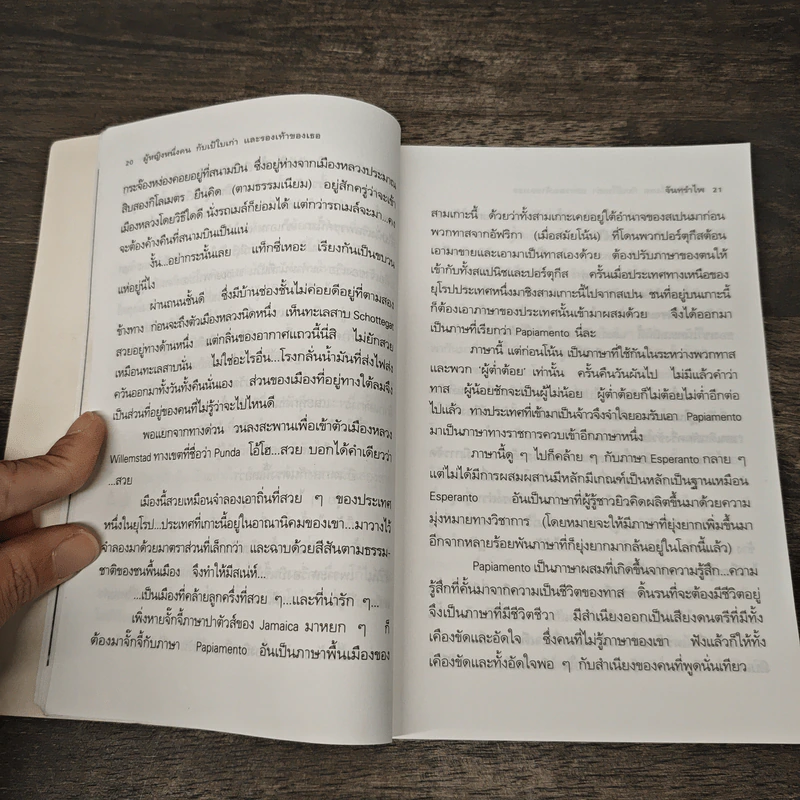 20 ผู้หญิงหนึ่งคน กับเป้ใบเก่า และรองเท้าของเธอ
กระจ๊องหง่องคอยอยู่ที่สนามบิน ซึ่งอยู่ห่างจากเมืองหลวงประมาณ
สิบสองกิโลเมตร ยืนคิด (ตามธรรมเนียม) อยู่สักครู่ว่าจะเข้า
เมืองหลวงโดยวิธีใดดี นั่งรถเมล์ก็ย่อมได้ แต่กว่ารถเมล์จะมา...คง
จะต้องค้างคืนที่สนามบินเป็นแน่
งั้น...อย่ากระนั้นเลย แท็กซี่เหอะ เรียงกันเป็นขบวน
แห่อยู่นี่ไง
ผ่านถนนชั้นดี ซึ่งมีบ้านช่องชั้นไม่ค่อยดีอยู่ที่ตามสอง
ข้างทาง ก่อนจะถึงตัวเมืองหลวงนิดหนึ่ง เห็นทะเลสาบ Schottegat
สวยอยู่ทางด้านหนึ่ง แต่กลิ่นของอากาศแถวนี้นี่สิ ไม่ยักสวย
เหมือนทะเลสาบนั่น ไม่ใช่อะไรอื่น...โรงกลั่นน้ำมันที่ส่งไฟส่ง
ควันออกมาทั้งวันทั้งคืนนั่นเอง ส่วนของเมืองที่อยู่ทางใต้ลมจึง
เป็นส่วนที่อยู่ของคนที่ไม่รู้ว่าจะไปไหนดี
พอแยกจากทางด่วน วนลงสะพานเพื่อเข้าตัวเมืองหลวง
Willemstad ทางเขตที่ชื่อว่า Punda โอ้โฮ...สวย บอกได้คำเดียวว่า
...สวย
เมืองนี้สวยเหมือนจำลองเอาถิ่นที่สวย ๆ ของประเทศ
หนึ่งในยุโรป...ประเทศที่เกาะนี้อยู่ในอาณานิคมของเขา...มาวางไว้
จำลองมาด้วยมาตราส่วนที่เล็กกว่า และฉาบด้วยสีสันตามธรรม-
ชาติของชนพื้นเมือง จึงทำให้มีสเน่ห์...
...เป็นเมืองที่คล้ายลูกครึ่งที่สวย ๆ...และที่น่ารัก ๆ...
เพิ่งหายจั๊กจี้ภาษาปาตัวส์ของ Jamaica มาหยก ๆ ก็
ต้องมาจั๊กจี้กับภาษา Papiamento อันเป็นภาษาพื้นเมืองของ
จันทรำไพ 21
สามเกาะนี้ ด้วยว่าทั้งสามเกาะเคยอยู่ใต้อำนาจของสเปนมาก่อน
พวกทาสจากอัฟริกา (เมื่อสมัยโน้น) ที่โดนพวกปอร์ตุกีสต้อน
เอามาขายและเอามาเป็นทาสเองด้วย ต้องปรับภาษาของตนให้
เข้ากับทั้งสแปนิชและปอร์ตุกีส ครั้นเมื่อประเทศทางเหนือของ
ยุโรปประเทศหนึ่งมาชิงสามเกาะนี้ไปจากสเปน ชนที่อยู่บนเกาะนี้
ก็ต้องเอาภาษาของประเทศนั้นเข้ามาผสมด้วย จึงได้ออกมา
เป็นภาษาที่เรียกว่า Papiamento นี่ละ
ภาษานี้ แต่ก่อนโน้น เป็นภาษาที่ใช้กันในระหว่างพวกทาส
และพวก 'ผู้ต่ำต้อย' เท่านั้น ครั้นคืนวันผันไป ไม่มีแล้วคำว่า
ทาส ผู้น้อยชักจะเป็นผู้ไม่น้อย ผู้ต่ำต้อยก็ไม่ต้อยไม่ต่ำอีกต่อ
ไปแล้ว ทางประเทศที่เข้ามาเป็นจ้าวจึงจำใจยอมรับเอา Papiamento
มาเป็นภาษาทางราชการควบเข้าอีกภาษาหนึ่ง
ภาษานี้ดู ๆ ไปก็คล้าย ๆ กับภาษา Esperanto กลาย ๆ
แต่ไม่ได้มีการผสมผสานมีหลักมีเกณฑ์เป็นหลักเป็นฐานเหมือน
Esperanto อันเป็นภาษาที่ผู้รู้ชาวยิวคิดผลิตขึ้นมาด้วยความ
มุ่งหมายทางวิชาการ (โดยหมายจะให้มีภาษาที่ยุ่งยากเพิ่มขึ้นมา
อีกจากหลายร้อยพันภาษาที่ก็ยุ่งยากมากล้นอยู่ในโลกนี้แล้ว)
Papiamento เป็นภาษาผสมที่เกิดขึ้นจากความรู้สึก...ความ
รู้สึกที่คั้นมาจากความเป็นชีวิตของทาส ดิ้นรนที่จะต้องมีชีวิตอยู่
จึงเป็นภาษาที่มีชีวิตชีวา มีสำเนียงออกเป็นเสียงดนตรีที่มีทั้ง
เคืองขัดและอัดใจ ซึ่งคนที่ไม่รู้ภาษาของเขา ฟังแล้วก็ให้ทั้ง
เคืองขัดและทั้งอัดใจพอ ๆ กับสำเนียงของคนที่พูดนั่นเทียว